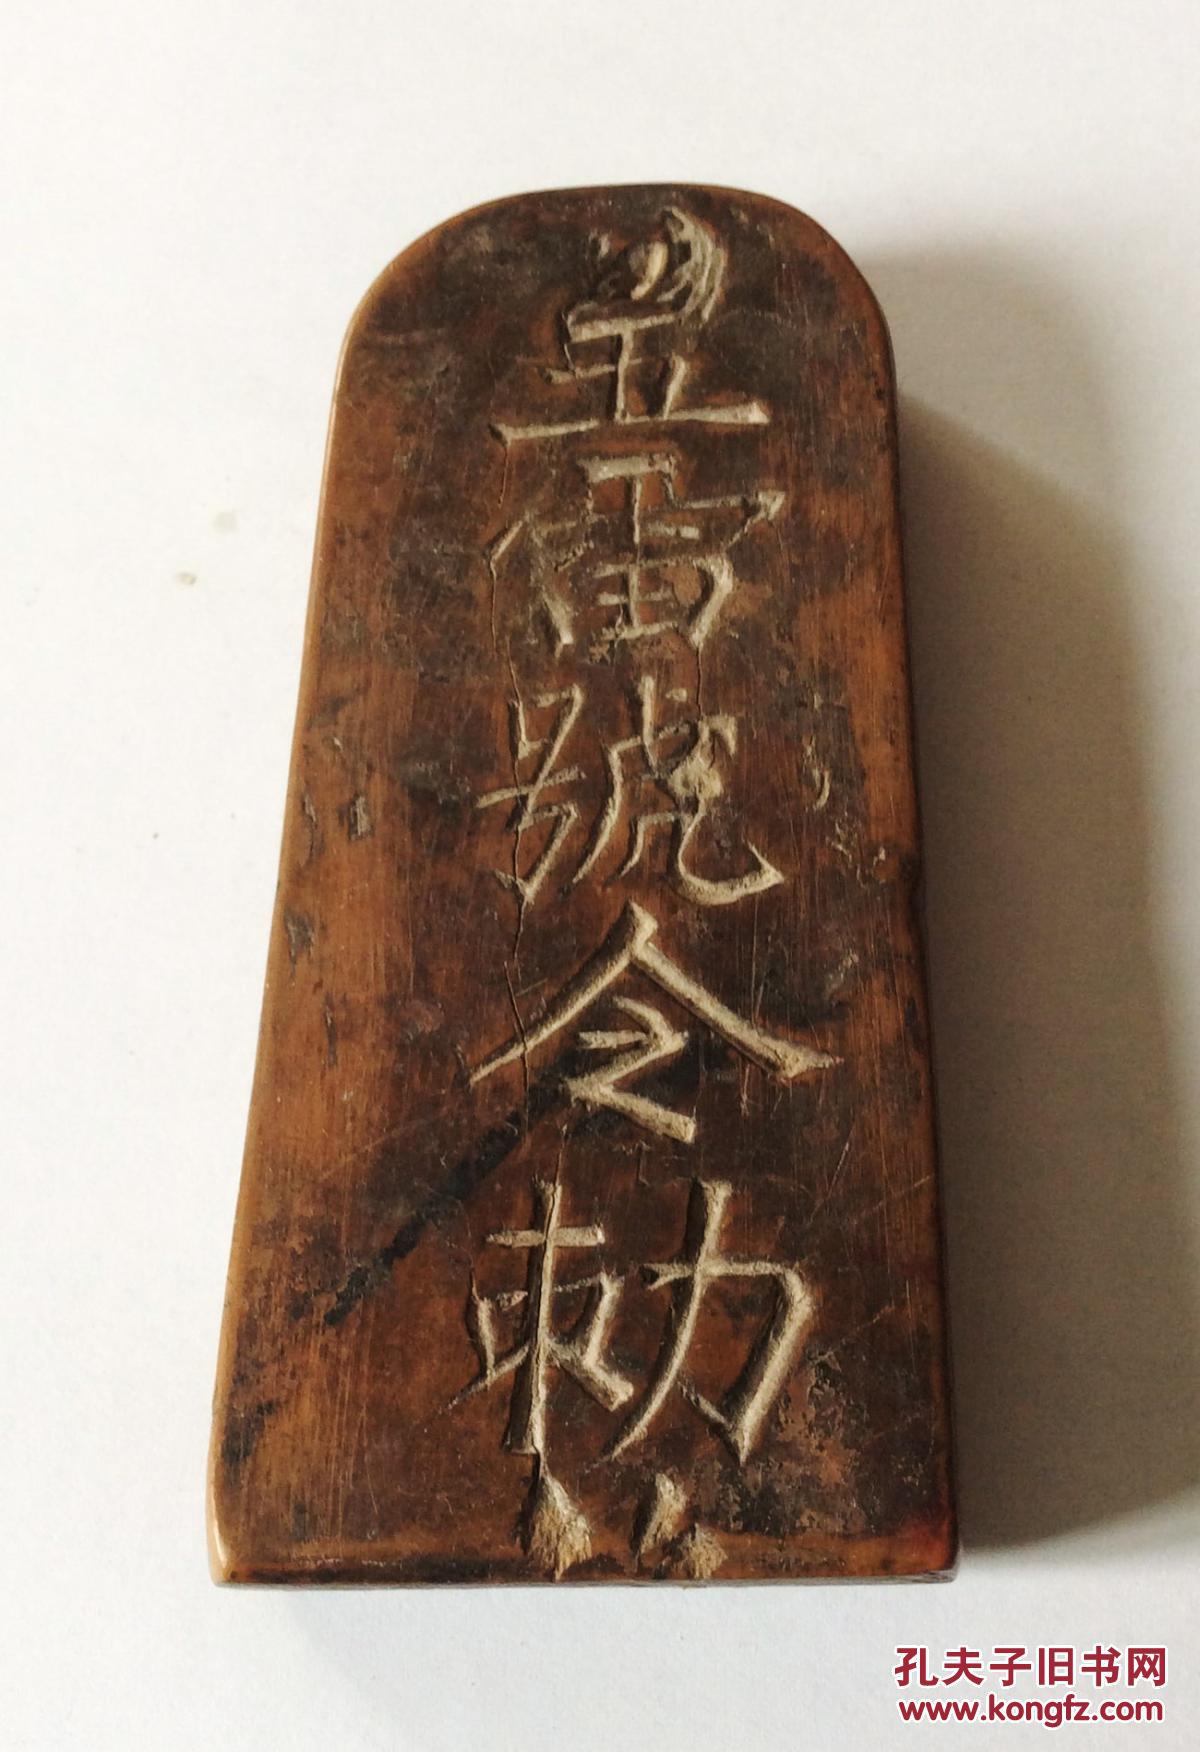 五雷號令勅
孔夫子旧书网
www.kongfz.com